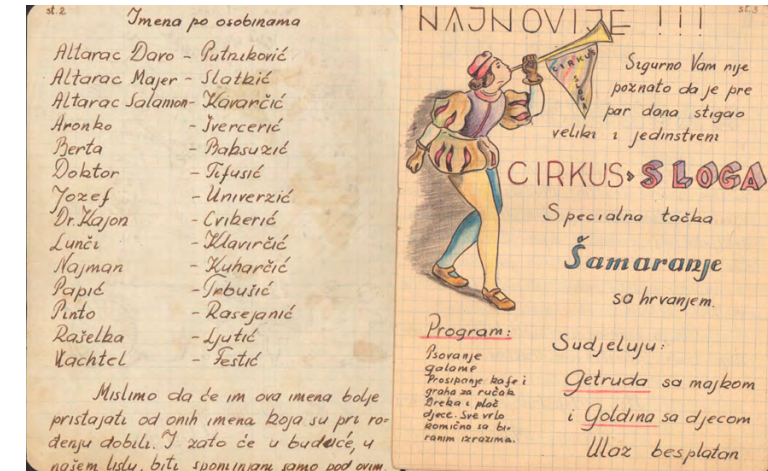 st. 2
Imena po osobinama
Altarac Davo - Putniković
Altarac Majer - Slatkić
Altarac Salamon - Kavarčić
Aronko - Švercerić
Berta - Baksuzić
Doktor - Tifusić
Jozef - Univerzić
Dr. Kajon - Cviberić
Lunči - Klavirčić
Najman - Kuharčić
Papić - Trbušić
Pinto - Rasejanić
Rašelka - Ljutić
Wachtel - Testić
Mislimo da će im ova imena bolje
pristajati od onih imena koja su pri ro-
đenju dobili. I zato će u buduće, u
našem listu, biti spominjani samo pod ovim
st. 3
NAJNOVIJE !!!
CIRKUS
SLOGA
Sigurno Vam nije
poznato da je pre
par dana stigao
veliki i jedinstveni
CIRKUS SLOGA
Specialna tačka
Šamaranje
sa hrvanjem.
Program:
Psovanje
galame
Prosipanje kafe i
graha za ručak
Dreka i plač
djece. Sve vrlo
komično sa bi-
ranim izrazima.
Sudjeluju:
Getruda sa majkom
i Goldina sa djecom
Ulaz besplatan